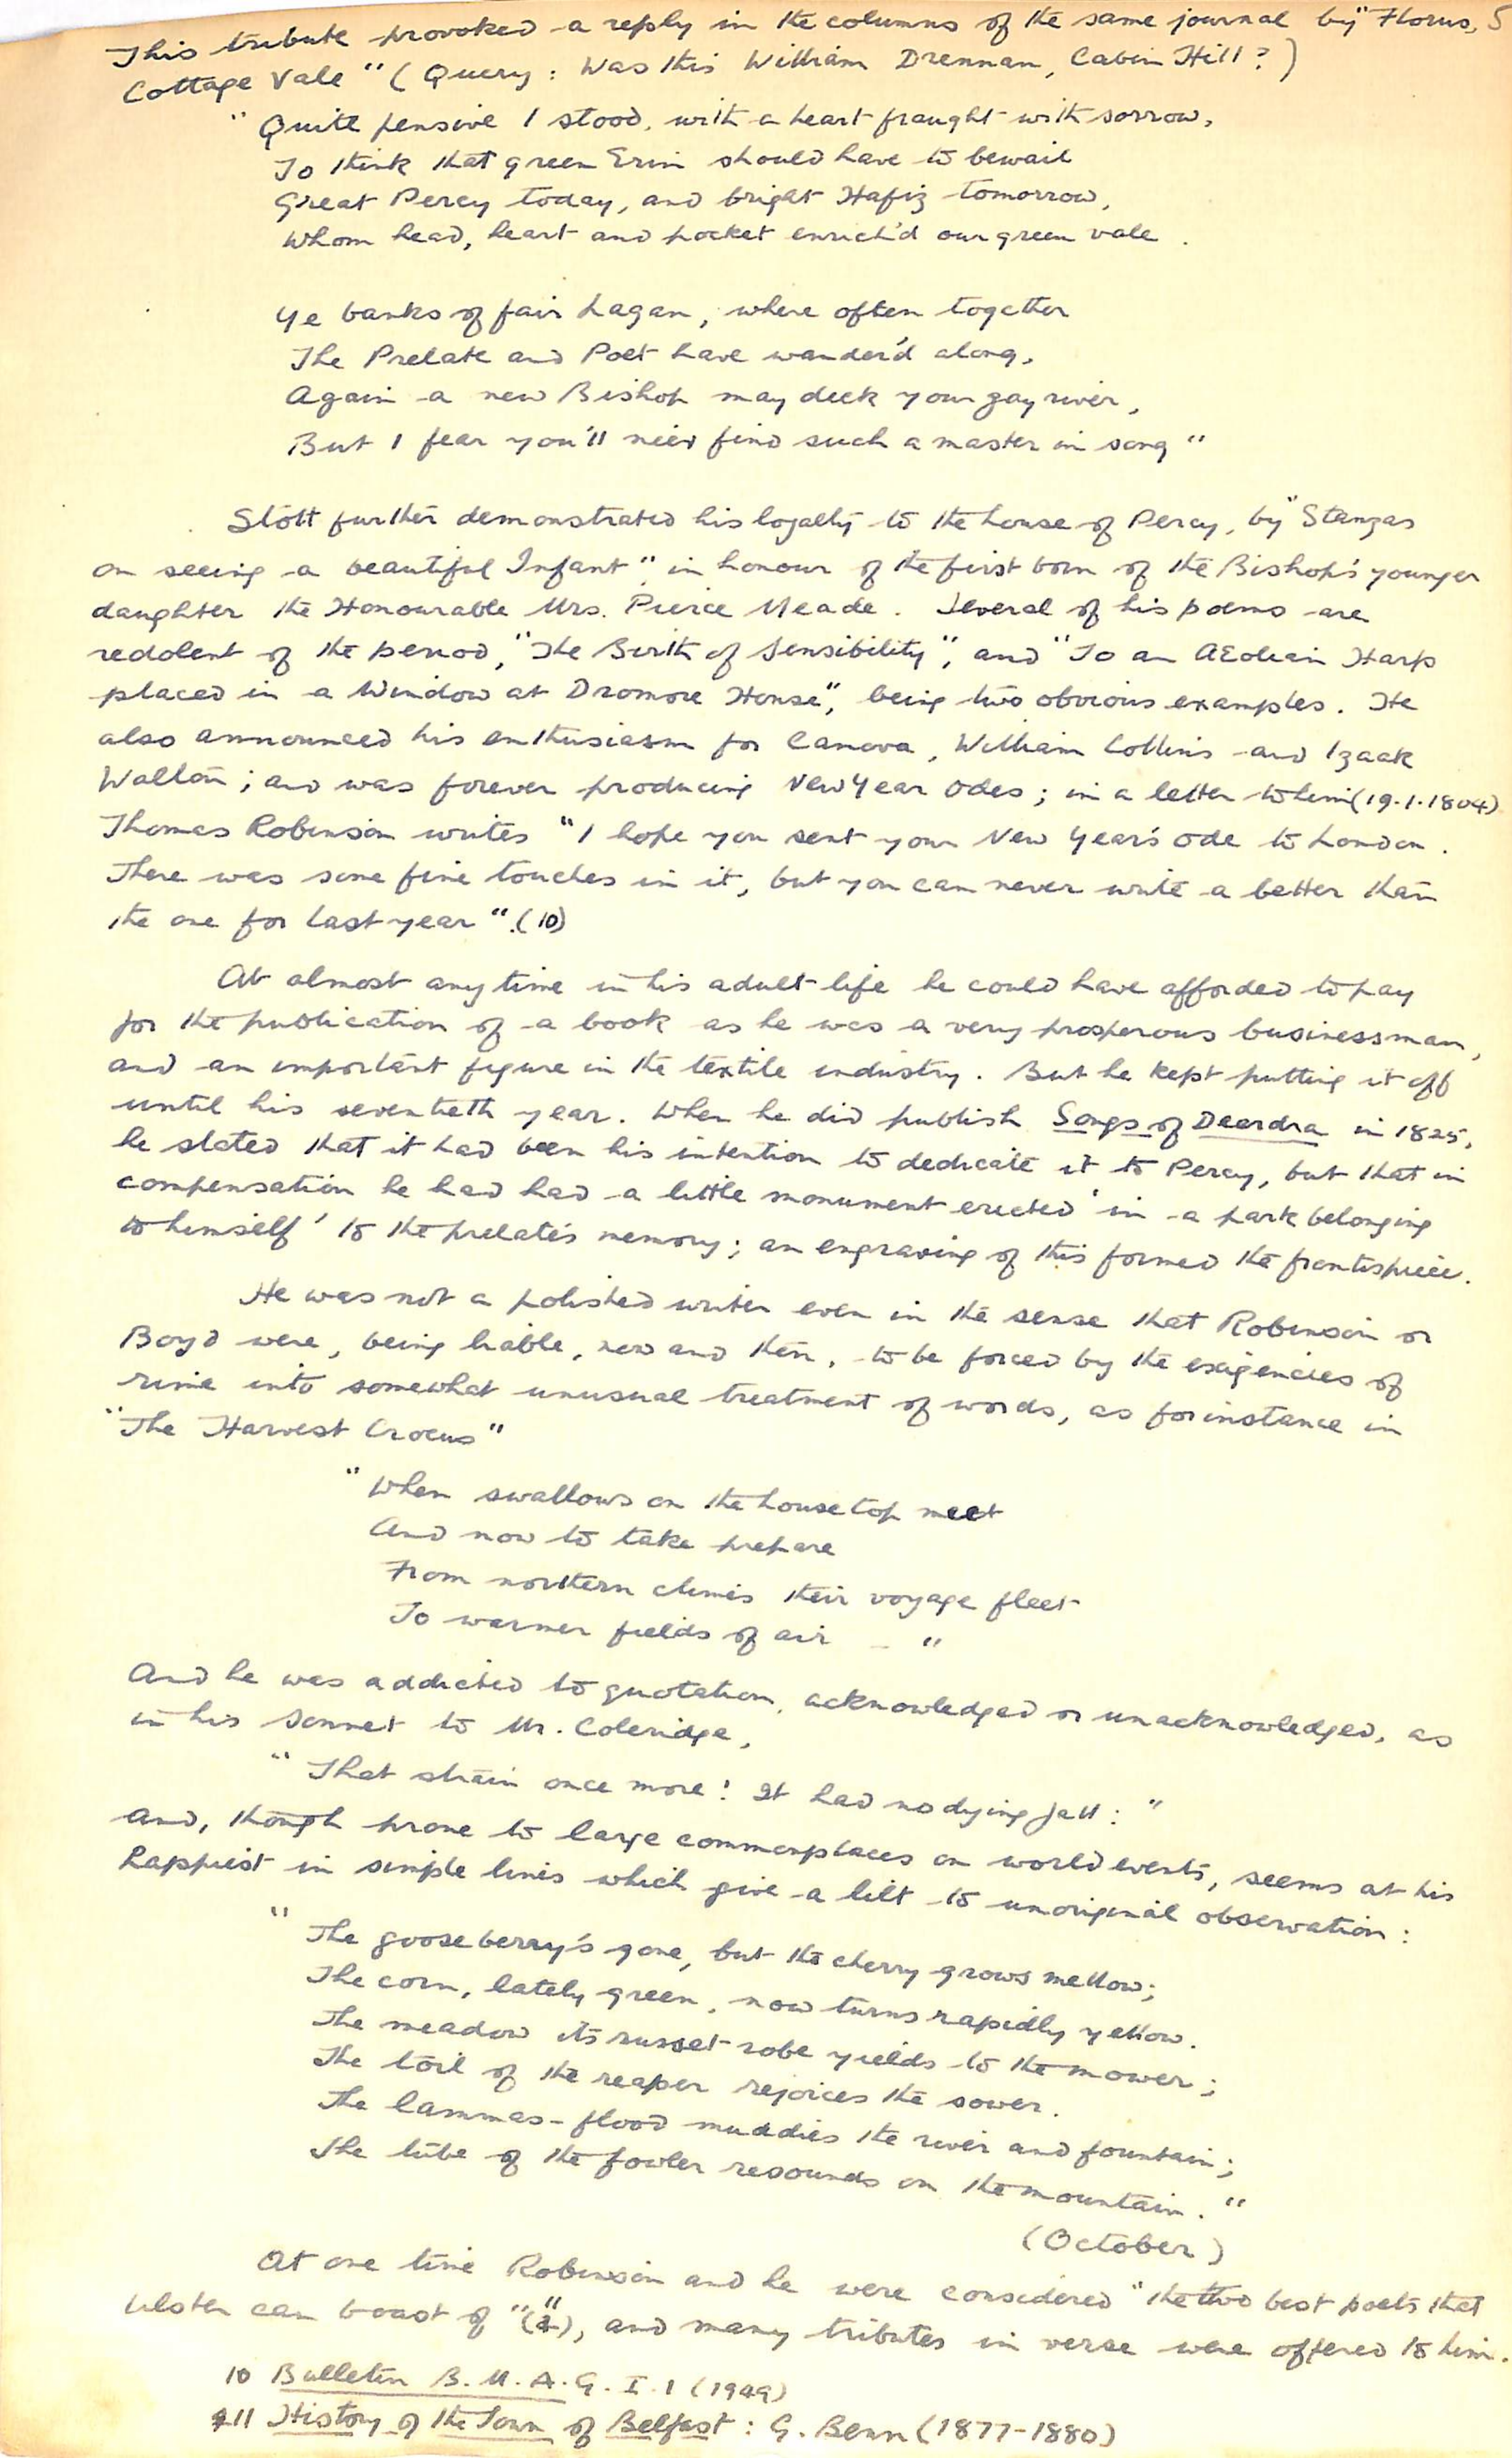 This tribute provoked a reply in the columns of the same journal by "Florus, 5
Cottage Vale" (Query: Was this William Drennan, Cabin Hill?)
"Quite pensive I stood, with a heart fraught with sorrow,
To think that green Erin should have to bewail
Great Percy today, and bright Hafiz tomorrow,
Whom head, heart and pocket enrich'd our green vale.
Ye banks of fair Lagan, where often together
The Prelate and Poet have wander'd along,
Again a new Bishop may deck your gay river,
But I fear you'll ne'er find such a master in song"
Stott further demonstrated his loyalty to the house of Percy, by "Stanzas
on seeing a beautiful Infant", in honour of the first born of the Bishop's younger
daughter the Honourable Mrs. Pierce Meade. Several of his poems are
redolent of the period, "The Birth of Sensibility", and "To an AEolian Harp
placed in a Window at Dromore House", being two obvious examples. He
also announced his enthusiasm for Canova, William Collins and Izaak
Walton; and was forever producing New Year Odes; in a letter to him (19.1.1804)
Thomas Robinson writes "I hope you sent your New Year's Ode to London.
There was some fine touches in it, but you can never write a better than
the one for last year".(10)
At almost any time in his adult life he could have afforded to pay
for the publication of a book as he was a very prosperous businessman,
and an important figure in the textile industry. But he kept putting it off
until his seventieth year. When he did publish Songs of Deardra in 1825,
he stated that it had been his intention to dedicate it to Percy, but that in
compensation he had had a little monument erected 'in a park belonging
to himself' to the prelate's memory; an engraving of this formed the frontispiece.
He was not a polished writer even in the sense that Robinson or
Boyd were, being liable, now and then, to be forced by the exigencies of
rime into somewhat unusual treatment of words, as for instance in
"The Harvest Crocus"
"When swallows on the house top meet
And now to take prepare
From northern climes their voyage fleet
To warmer fields of air – "
And he was addicted to quotation, acknowledged or unacknowledged, as
in his Sonnet to Mr. Coleridge,
"That strain once more! It had no dying fall:"
And, though prone to large commonplaces on world events, seems at his
happiest in simple lines which give a lilt to unoriginal observation:
"The gooseberry's gone, but the cherry grows mellow;
The corn, lately green, now turns rapidly yellow.
The meadow its russet robe yields to the mower;
The toil of the reaper rejoices the sower.
The lammas-flood muddies the river and fountain;
The tube of the fowler resounds on the mountain."
(October)
At one time Robinson and he were considered "the two best poets that
Ulster can boast of" (11), and many tributes in verse were offered to him.
10 Bulletin B.M.A.G. I.1 (1949)
11 History of the Town of Belfast: G. Benn (1877-1880)